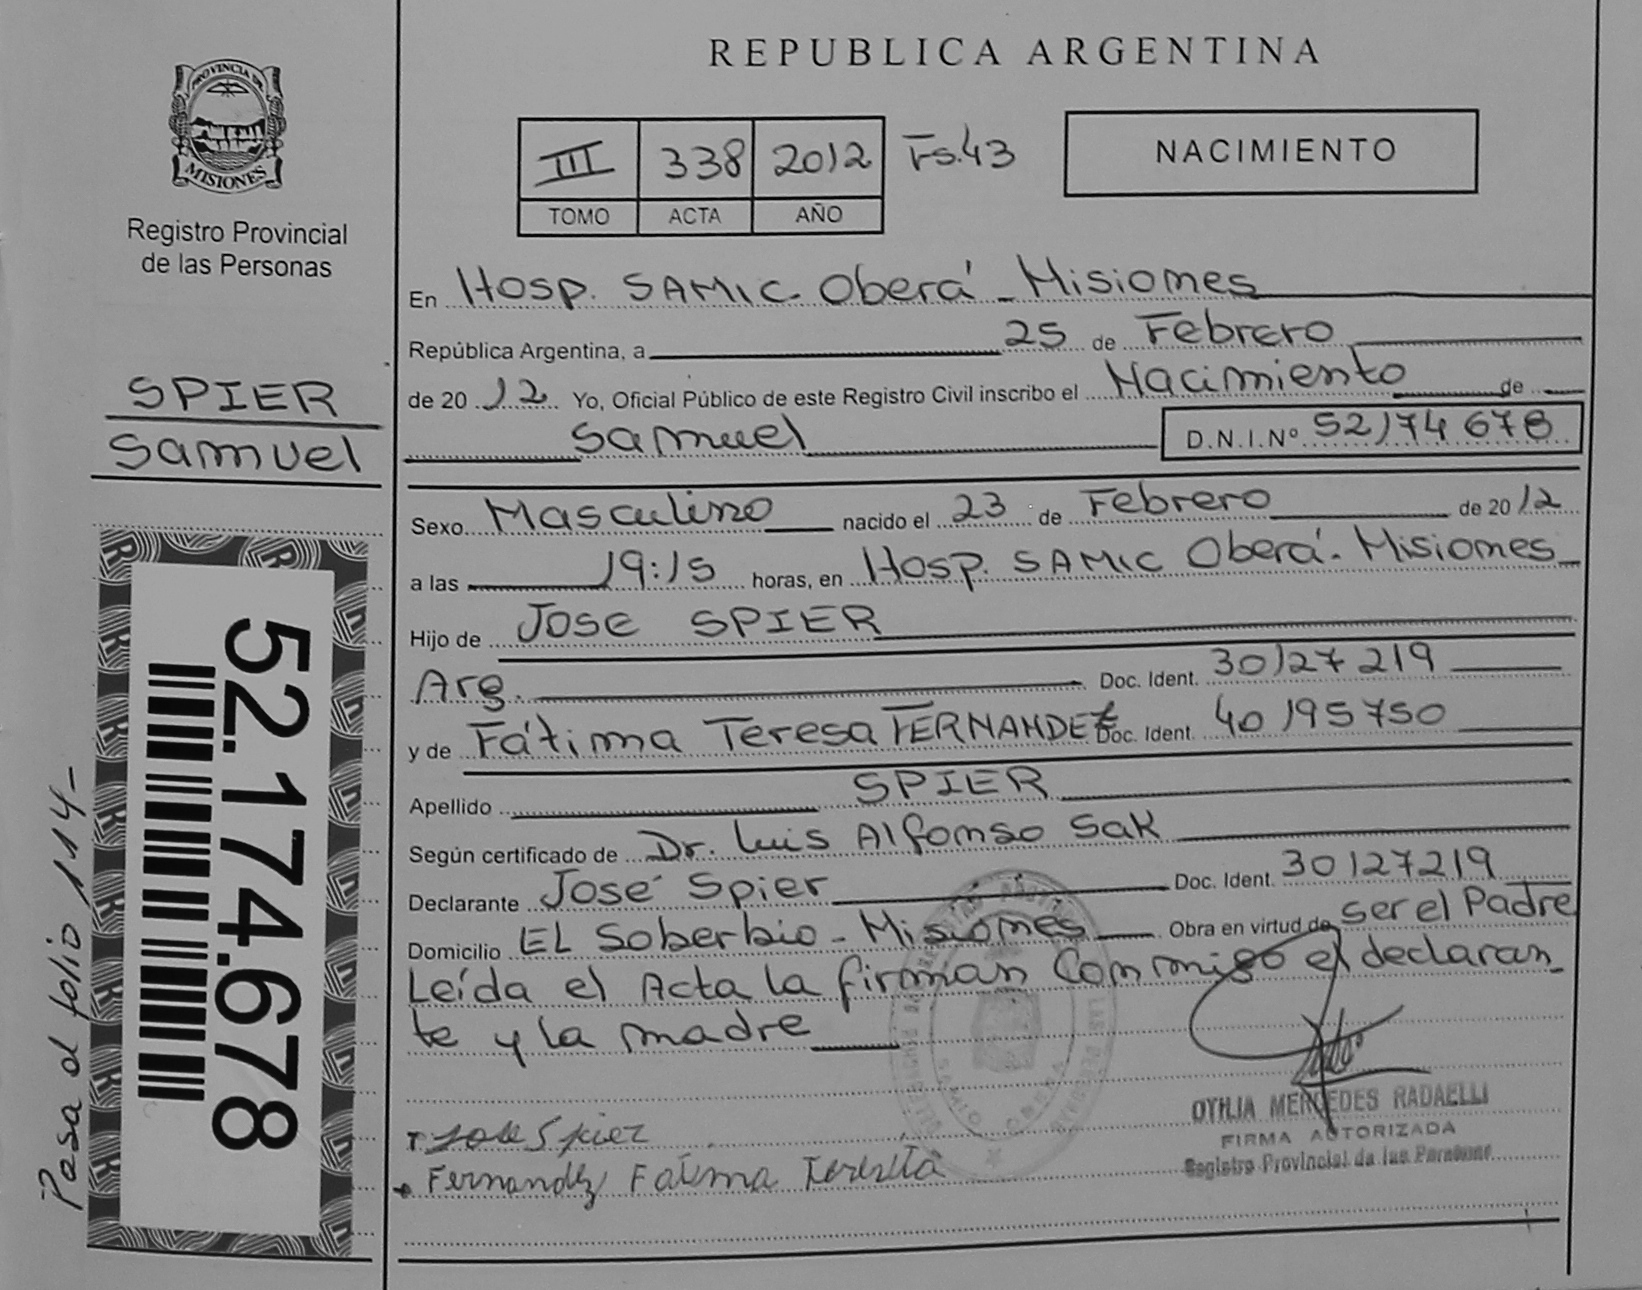 PROVINCIA DE
MISIONES
Registro Provincial
de las Personas
SPIER
Samuel
52.174.678
Pasa al folio 114-
REPUBLICA ARGENTINA
III 338 2012 Fs.43
TOMO ACTA AÑO
NACIMIENTO
En Hosp. SAMIC. Oberá - Misiones
República Argentina, a 25 de Febrero
de 20 12 Yo, Oficial Público de este Registro Civil inscribo el Nacimiento de
Samuel D.N.I.Nº 52174678
Sexo Masculino nacido el 23 de Febrero de 20 12
a las 19:15 horas, en Hosp. SAMIC Oberá - Misiones
Hijo de Jose SPIER
Arg. Doc. Ident. 30127219
y de Fátima Teresa FERNANDEZ Doc. Ident. 40195750
Apellido SPIER
Según certificado de Dr. Luis Alfonso Sak
Declarante José Spier Doc. Ident. 30127219
Domicilio EL Soberbio - Misiones Obra en virtud de ser el Padre
Leída el Acta la firman conmigo el declaran_
te y la madre
Jose Spier
Fernandez Fatima Teresita
MERCEDES RADAELLI
FIRMA AUTORIZADA
Registro Provincial de las Personas
SAMIC OBERA